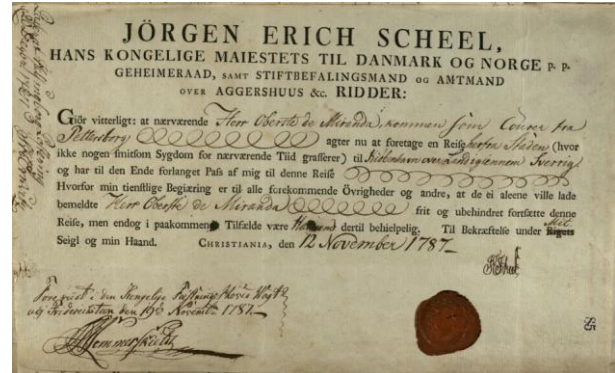 JÖRGEN ERICH SCHEEL,
HANS KONGELIGE MAIESTETS TIL DANMARK OG NORGE P. P.
GEHEIMERAAD, SAMT STIFTBEFALINGSMAND OG AMTMAND
OVER AGGERSHUUS &c. RIDDER:
Giör vitterligt: at nærværende Herr Oberste de Miranda, kommen som Courer fra
Pettersborg agter nu at foretage en Reise herfra Staden (hvor
ikke nogen smitsom Sygdom for nærværende Tiid grasserer) til Kiöbenhavn over Land igiennem Sverrig
og har til den Ende forlanget Pass af mig til denne Reise
Hvorfor min tienstlige Begiæring er til alle forekommende Övrigheder og andre, at de ei aleene ville lade
bemeldte Herr Oberste de Miranda frit og ubehindret fortsætte denne
Reise, men endog i paakommende Tilfælde være Ham dertil behielpelig. Til Bekræftelse under Mit
Seigl og min Haand. CHRISTIANIA, den 12 November 1787.
Foreviist i den Kongelige Fæstnings
og Friderichstein den 19de Novembr 1787.
85